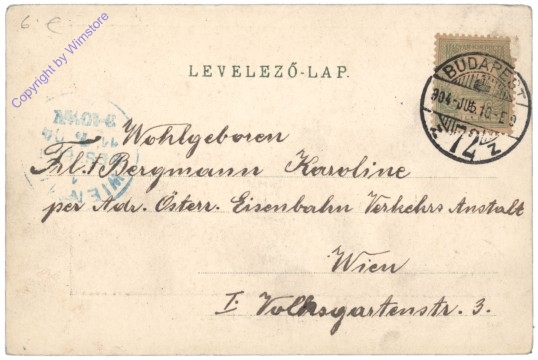 6.
Copyright by Wimstore
MAGYAR KIR. POSTA
LEVELEZŐ-LAP.
BUDAPEST
904
72
WIEN
Wohlgeboren
Frl. Bergmann Karoline
per Adr. Österr. Eisenbahn Verkehrs Anstalt
Wien
I. Volksgartenstr. 3.